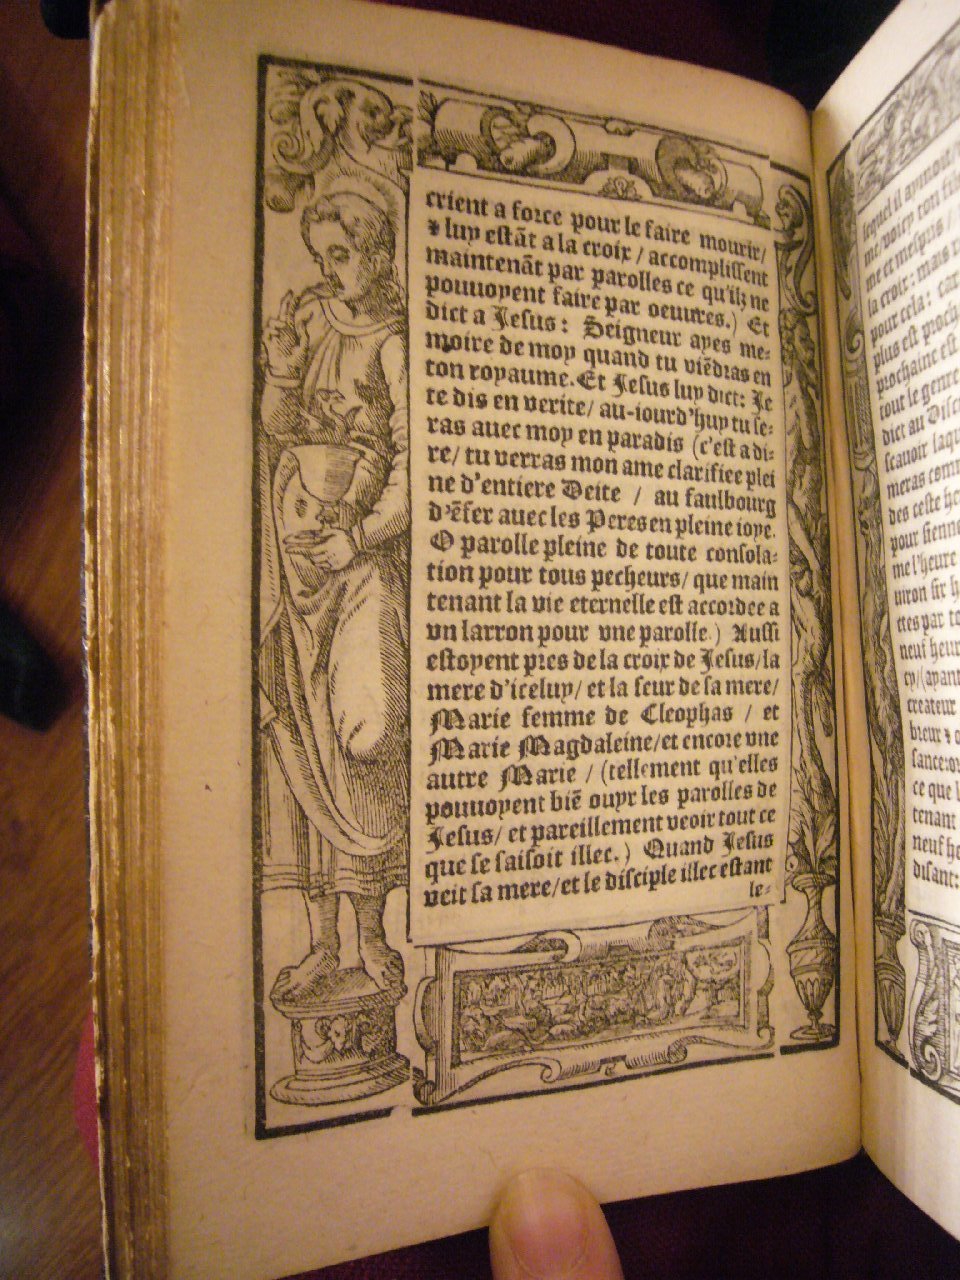 crient a force pour le faire mourir/
⁊ luy estāt a la croix/ accomplissent
maintenāt par parolles ce qu'ilz ne
pouuoyent faire par oeuures.) Et
dict a Jesus: Seigneur ayes me-
moire de moy quand tu viēdras en
ton royaume. Et Jesus luy dict: Je
te dis en verite/ au-iourd'huy tu se-
ras auec moy en paradis (c'est a di-
re/ tu verras mon ame clarifiee plei
ne d'entiere Deite / au faulbourg
d'ēfer auec les Peres en pleine ioye.
O parolle pleine de toute consola-
tion pour tous pecheurs/ que main
tenant la vie eternelle est accordee a
vn larron pour vne parolle.) Aussi
estoyent pres de la croix de Jesus/ la
mere d'iceluy/ et la seur de sa mere/
Marie femme de Cleophas / et
Marie Magdaleine/ et encore vne
autre Marie / (tellement qu'elles
pouuoyent biē ouyr les parolles de
Jesus/ et pareillement veoir tout ce
que se faisoit illec.) Quand Jesus
veit sa mere/ et le disciple illec estant
le-
lequel il aymoit/
me/ voicy ton
me et
la croix: mais
pour cela: car
plus est
prochaine est
tout le genre
dict au
scauoir
meras
des ceste
pour sienne
me l'heure
uiron
ctes par
neuf heur
cy/ (ayant
createur
breur ⁊
ce que
tenant
neuf
disant: